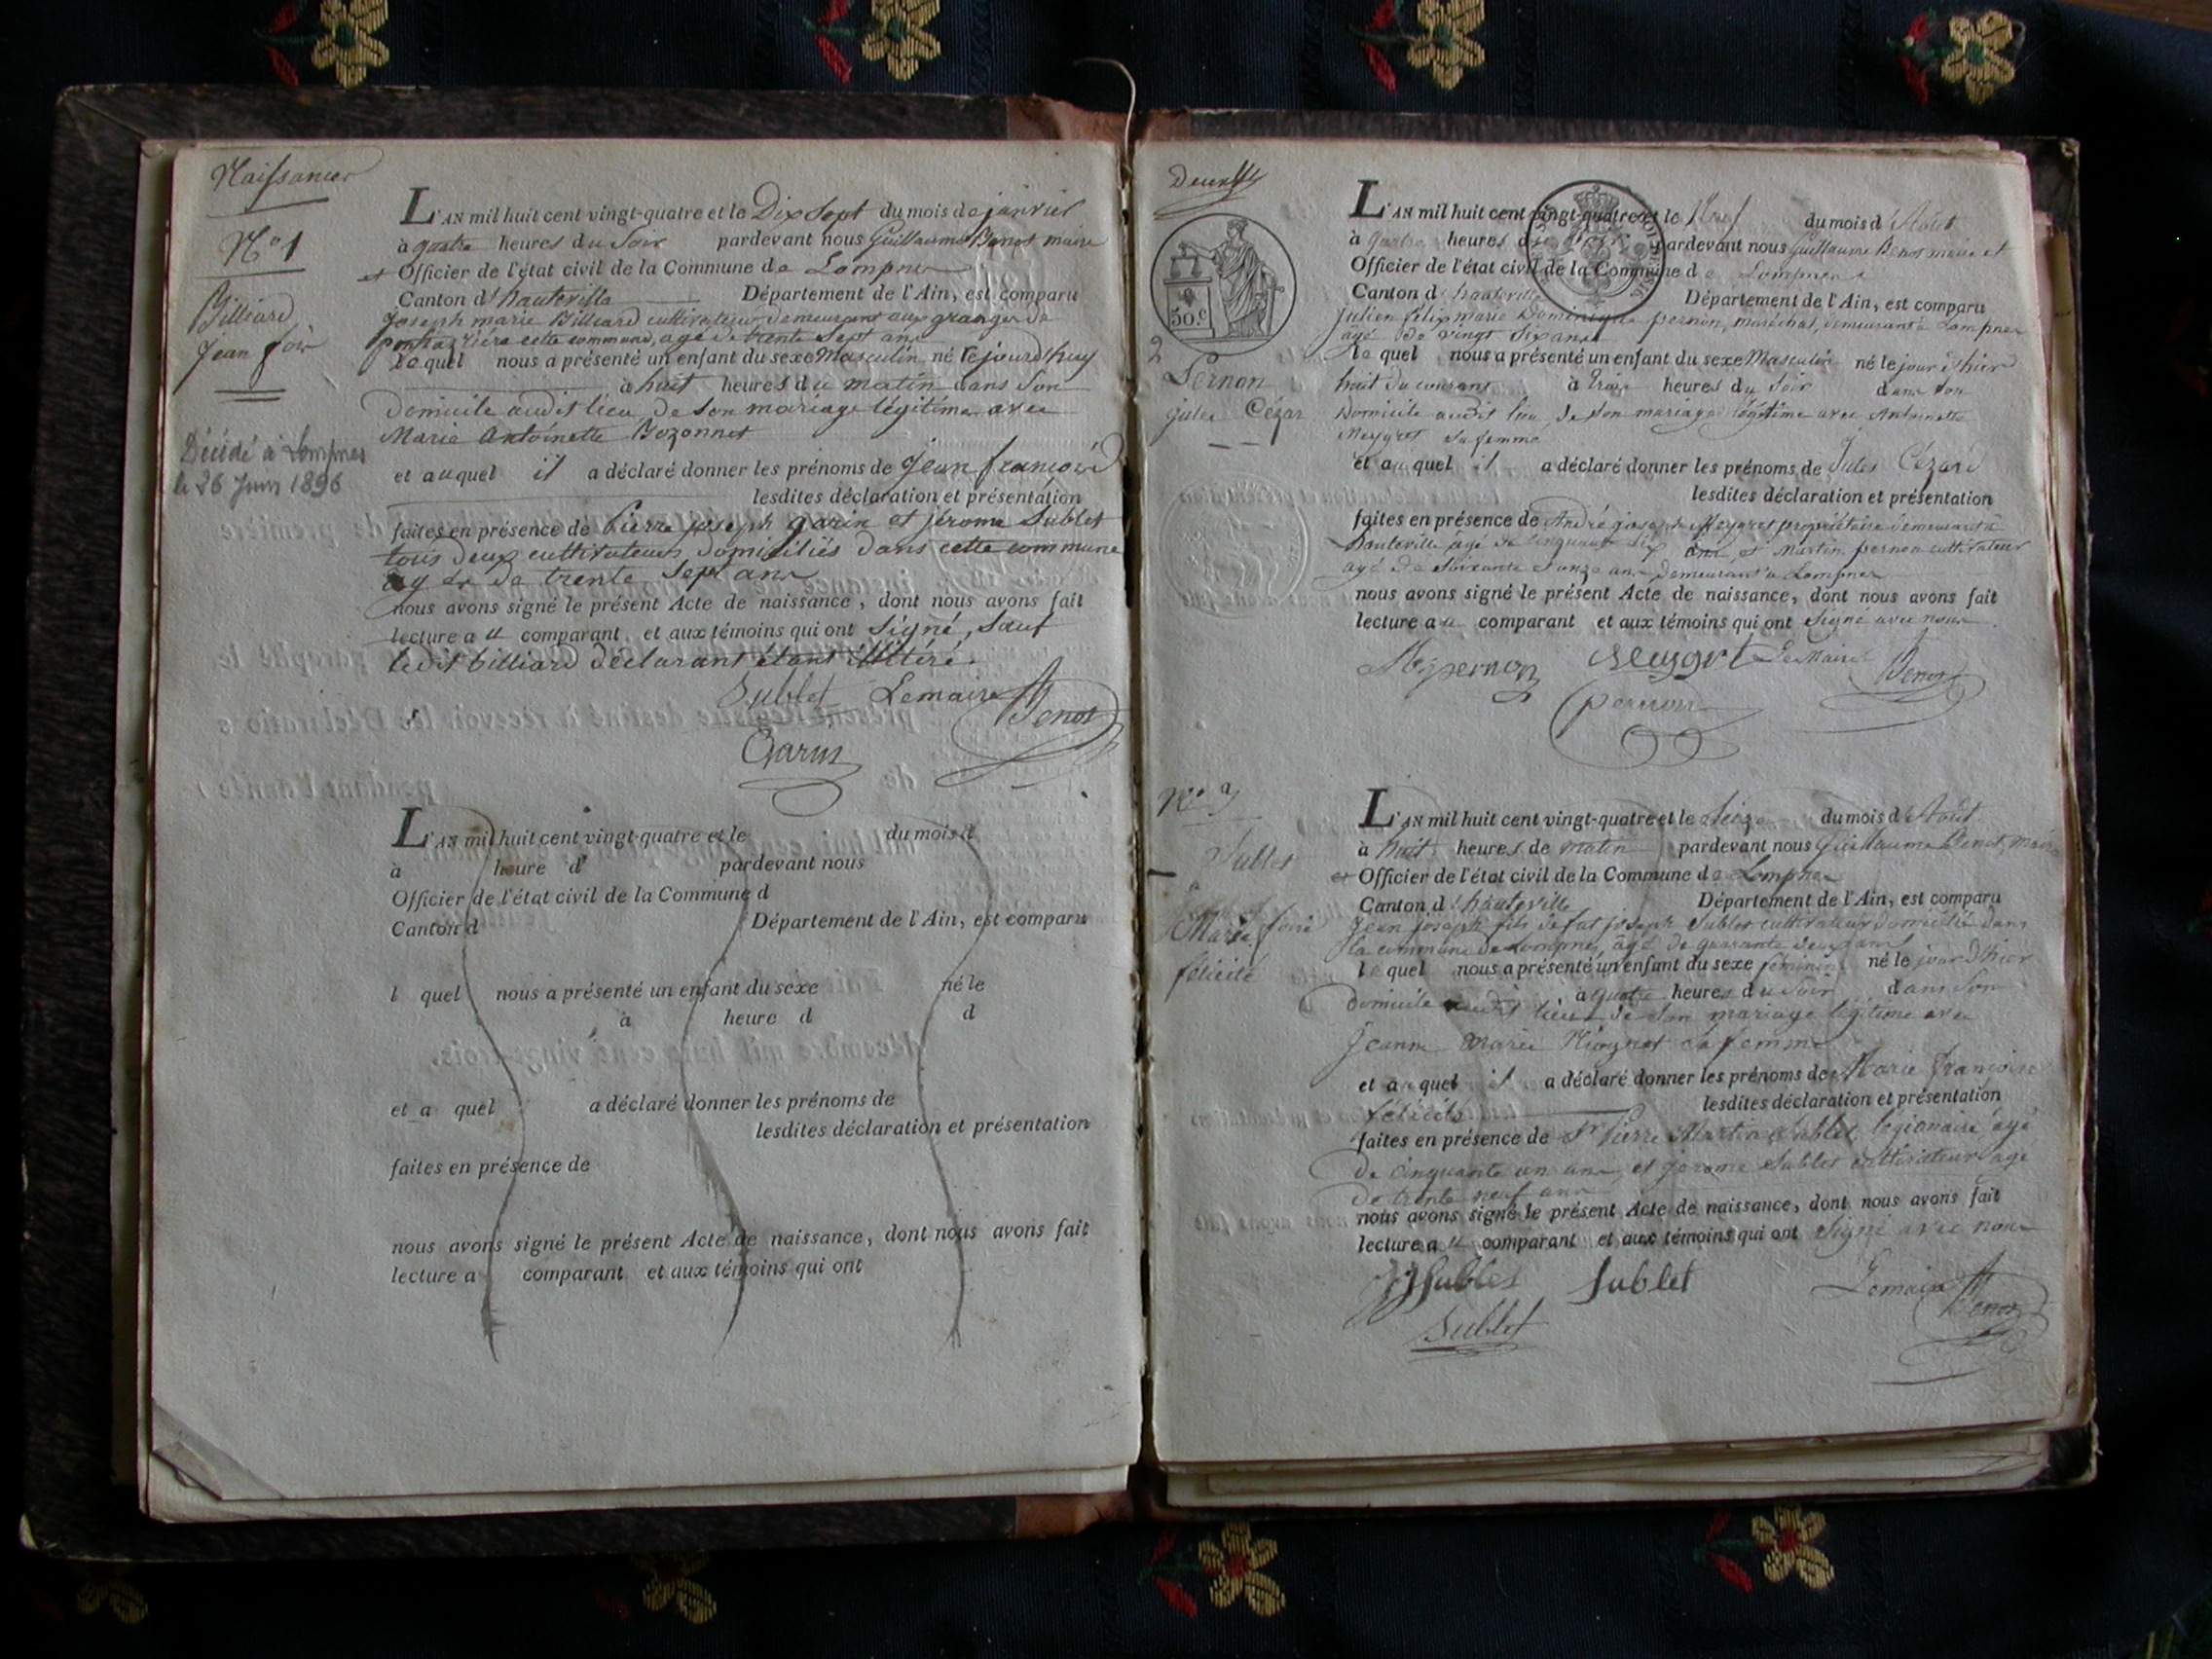 Naissances
N° 1
Billiard
Jean fois
Décédé à Lompnes
le 26 Juin 1896
L'AN mil huit cent vingt-quatre et le Dix Sept du mois de janvier
à quatre heures du Soir pardevant nous Guillaume Benot maire
et Officier de l'état civil de la Commune de Lompnes
Canton d'hauteville Département de l'Ain, est comparu
Joseph marie Billiard cultivateur demeurant aux granges de
cette commune, agé de trente Sept ans
lequel nous a présenté un enfant du sexe Masculin né le jourd'huy
à huit heures du matin dans Son
Domicile audit lieu, de Son mariage légitime avec
Marie Antoinette Bozonnet
et auquel il a déclaré donner les prénoms de Jean françois
lesdites déclaration et présentation
faites en présence de Pierre joseph garin et jérome Sublet
tous deux cultivateurs domiciliés dans cette commune
agés de trente Sept ans
nous avons signé le présent Acte de naissance, dont nous avons fait
lecture au comparant et aux témoins qui ont Signé, Sauf
ledit billiard déclarant étant illitéré.
Sublet Lemaire Benot
Garin
L'AN mil huit cent vingt-quatre et le du mois d
à heure d pardevant nous
Officier de l'état civil de la Commune d
Canton d Département de l'Ain, est comparu
l quel nous a présenté un enfant du sexe né le
à heure d d
et a quel a déclaré donner les prénoms de
lesdites déclaration et présentation
faites en présence de
nous avons signé le présent Acte de naissance, dont nous avons fait
lecture a comparant et aux témoins qui ont
50.c
2
Pernon
jules Cézar
L'AN mil huit cent vingt-quatre et le Neuf du mois d'Août
à quatre heures du Soir pardevant nous Guillaume Benot maire et
Officier de l'état civil de la Commune de Lompnes
Canton d'hauteville Département de l'Ain, est comparu
julien félix marie Dominique pernon, maréchal, demeurant à Lompnes
âgé de vingt Six ans
lequel nous a présenté un enfant du sexe Masculin né le jour d'hier
huit du courant à trois heures du Soir dans Son
Domicile audit lieu, de Son mariage légitime avec Antoinette
Meygret Sa femme
et auquel il a déclaré donner les prénoms de Jules Cézard
lesdites déclaration et présentation
faites en présence de André joseph Meygret propriétaire demeurant à
hauteville âgé de cinquante Six ans et Martin pernon cultivateur
agé de Soixante onze ans demeurant à Lompnes
nous avons signé le présent Acte de naissance, dont nous avons fait
lecture au comparant et aux témoins qui ont Signé avec nous
pernon Meygret Le Maire Benot
pernon
Sublet
Marie foise
félicité
L'AN mil huit cent vingt-quatre et le Seize du mois d'Août
à huit heures de matin pardevant nous Guillaume Benot, maire
et Officier de l'état civil de la Commune de Lompnes
Canton d'hauteville Département de l'Ain, est comparu
Jean joseph fils de fut joseph Sublet cultivateur domicilié dans
la commune de Lompnes, âgé de quarante deux ans
lequel nous a présenté un enfant du sexe féminin né le jour d'hier
à quatre heures du Soir dans Son
Domicile audit lieu de Son mariage légitime avec
Jeanne Marie Sa femme
et auquel il a déclaré donner les prénoms de Marie françoise
félicité lesdites déclaration et présentation
faites en présence de Sr Pierre Martin Sublet légionaire âgé
de cinquante un ans, et jérome Sublet cultivateur agé
de trente neuf ans
nous avons signé le présent Acte de naissance, dont nous avons fait
lecture au comparant et aux témoins qui ont Signé avec nous
Sublet Sublet Lemaire Benot
Sublet